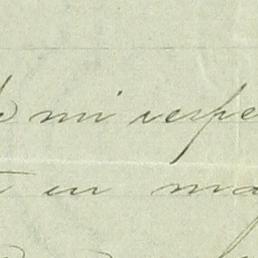 mi respe
en ma